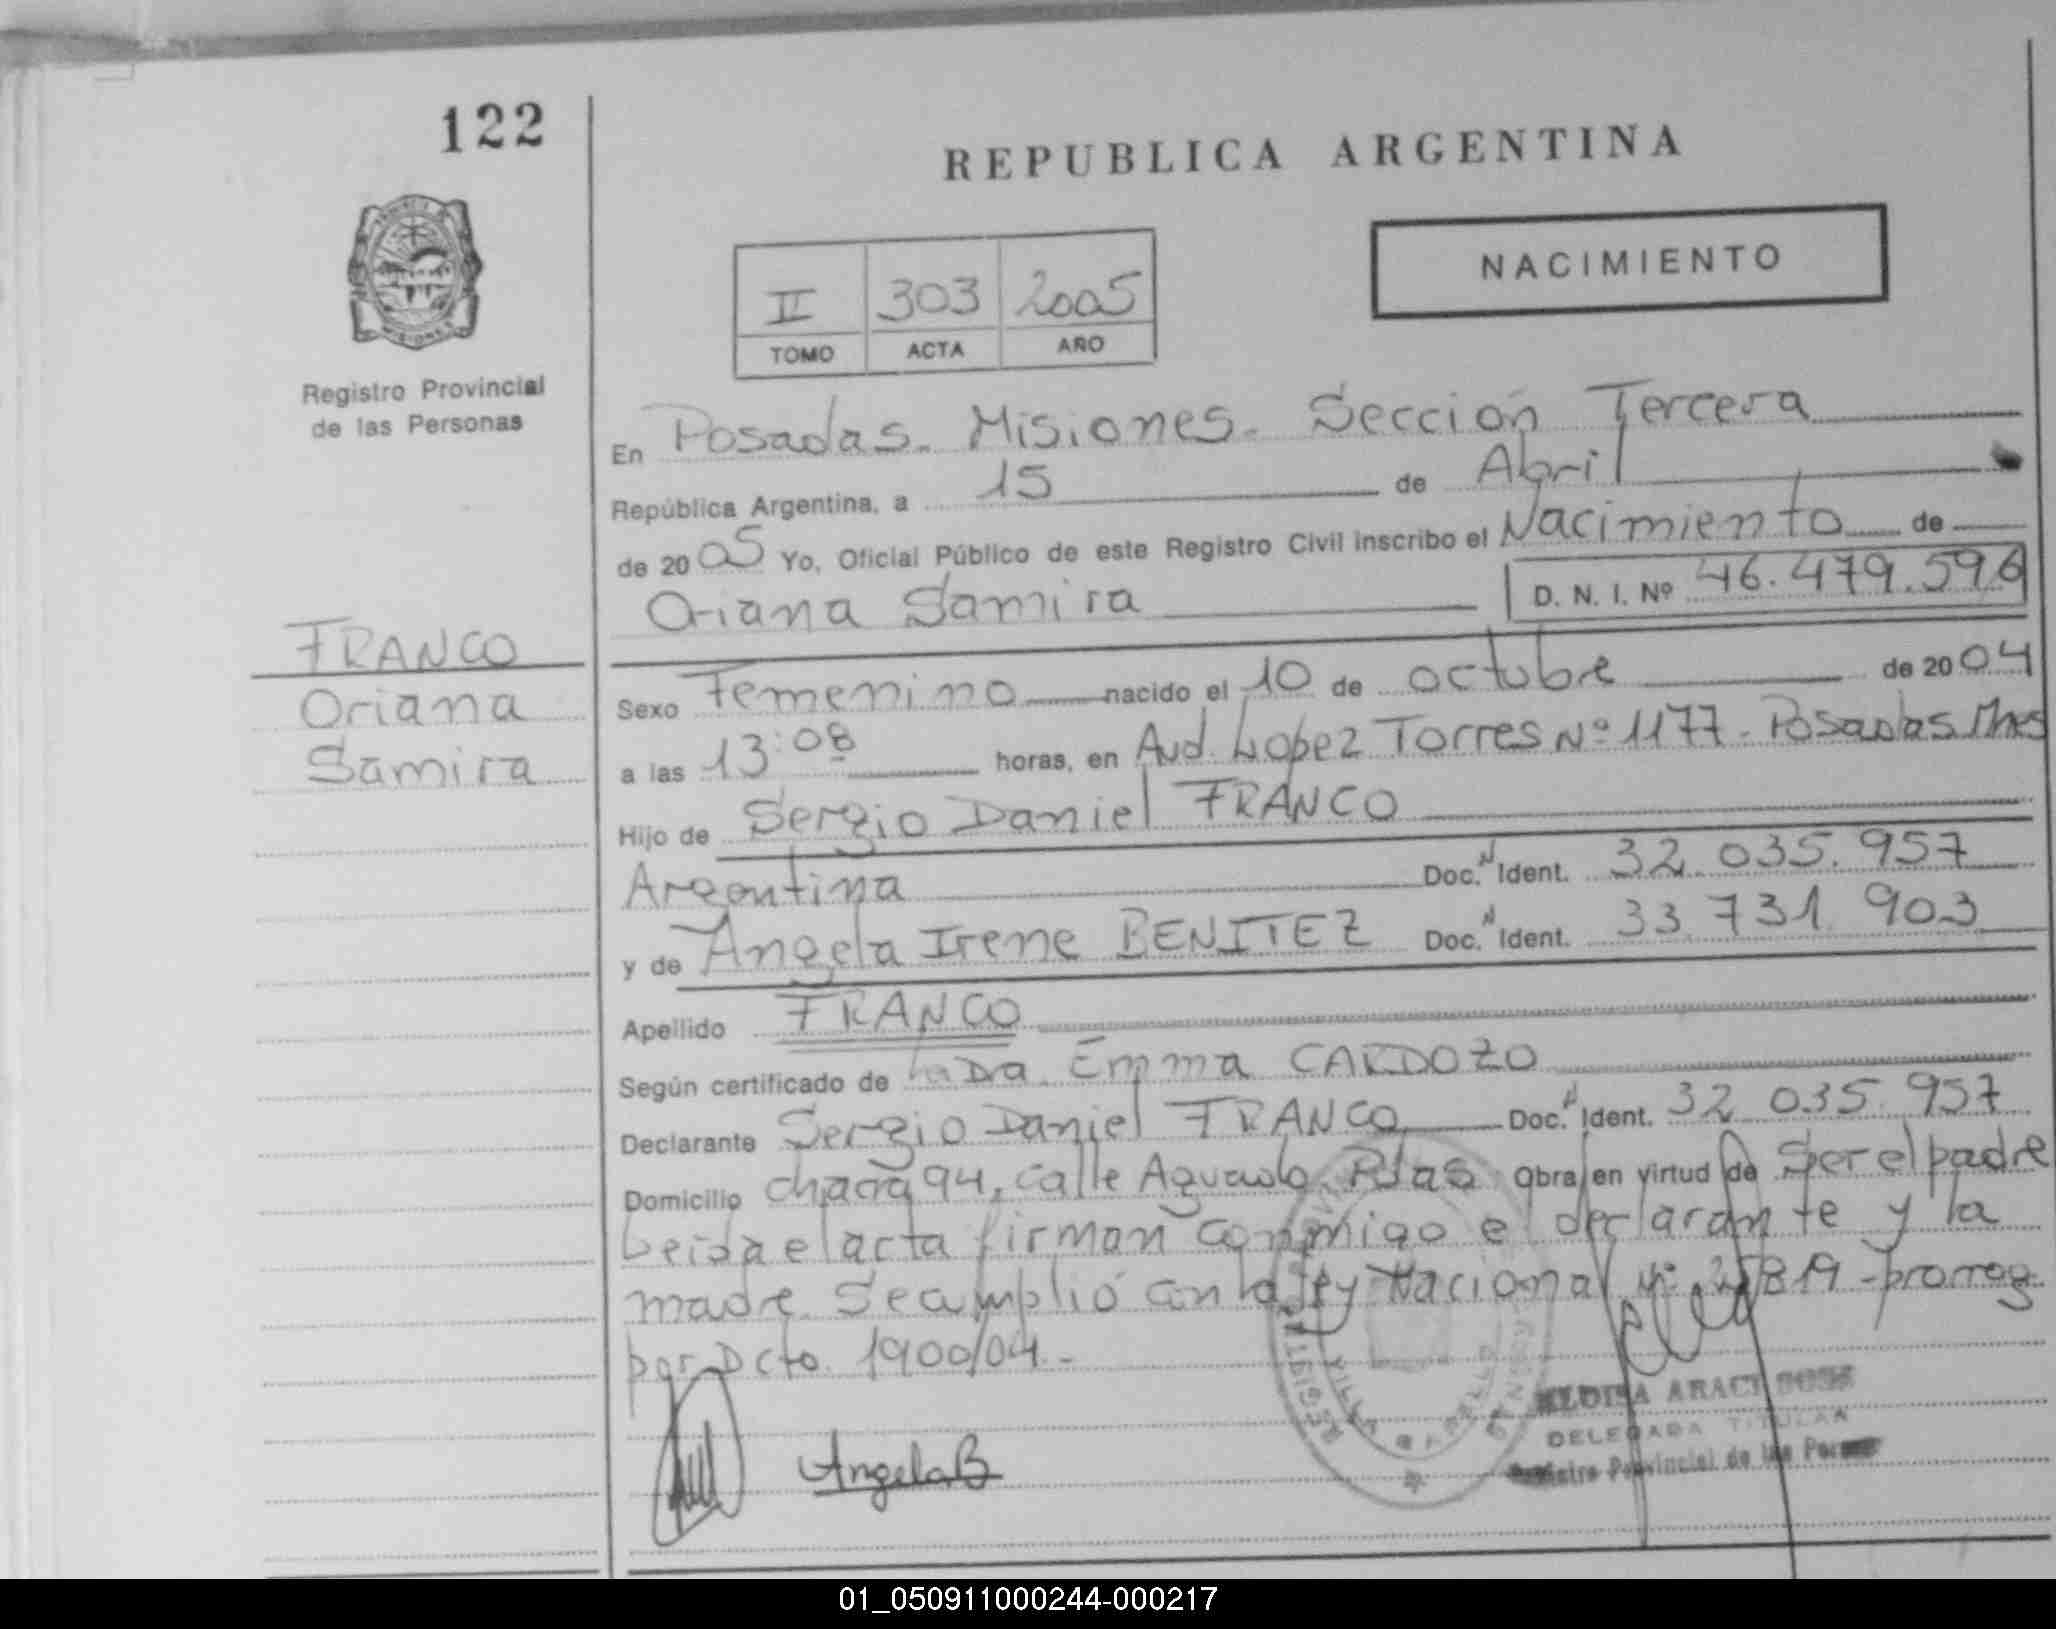 122
REPUBLICA ARGENTINA
NACIMIENTO
II 303 2005
TOMO ACTA AÑO
Registro Provincial
de las Personas
En Posadas. Misiones. Sección Tercera
República Argentina, a 15 de Abril
de 2005 Yo, Oficial Público de este Registro Civil inscribo el Nacimiento de
Oriana Samira D. N. I. Nº 46.479.596
FRANCO
Oriana
Samira
Sexo Femenino nacido el 10 de octubre de 2004
a las 13:08 horas, en Avd. Lopez Torres Nº 1177 - Posadas Mnes
Hijo de Sergio Daniel FRANCO
Argentina Doc. N Ident. 32 035. 957
y de Angela Irene BENITEZ Doc. N Ident. 33 731 903
Apellido FRANCO
Según certificado de la Dra. Emma CARDOZO
Declarante Sergio Daniel FRANCO Doc. N Ident. 32 035. 957
Domicilio chacra 94, calle Aguado. Pdas Obra en virtud de Ser el padre
Leida el acta firman conmigo el declarante y la
madre. Se amplió con la ley Nacional Nº 25819 - prorrog.
por Dcto. 1900/04.-
AngelaB
MISIONES VILLA CABELLO
ARACI
DELEGADA TITULAR
Registro Provincial de las Personas
01_050911000244-000217